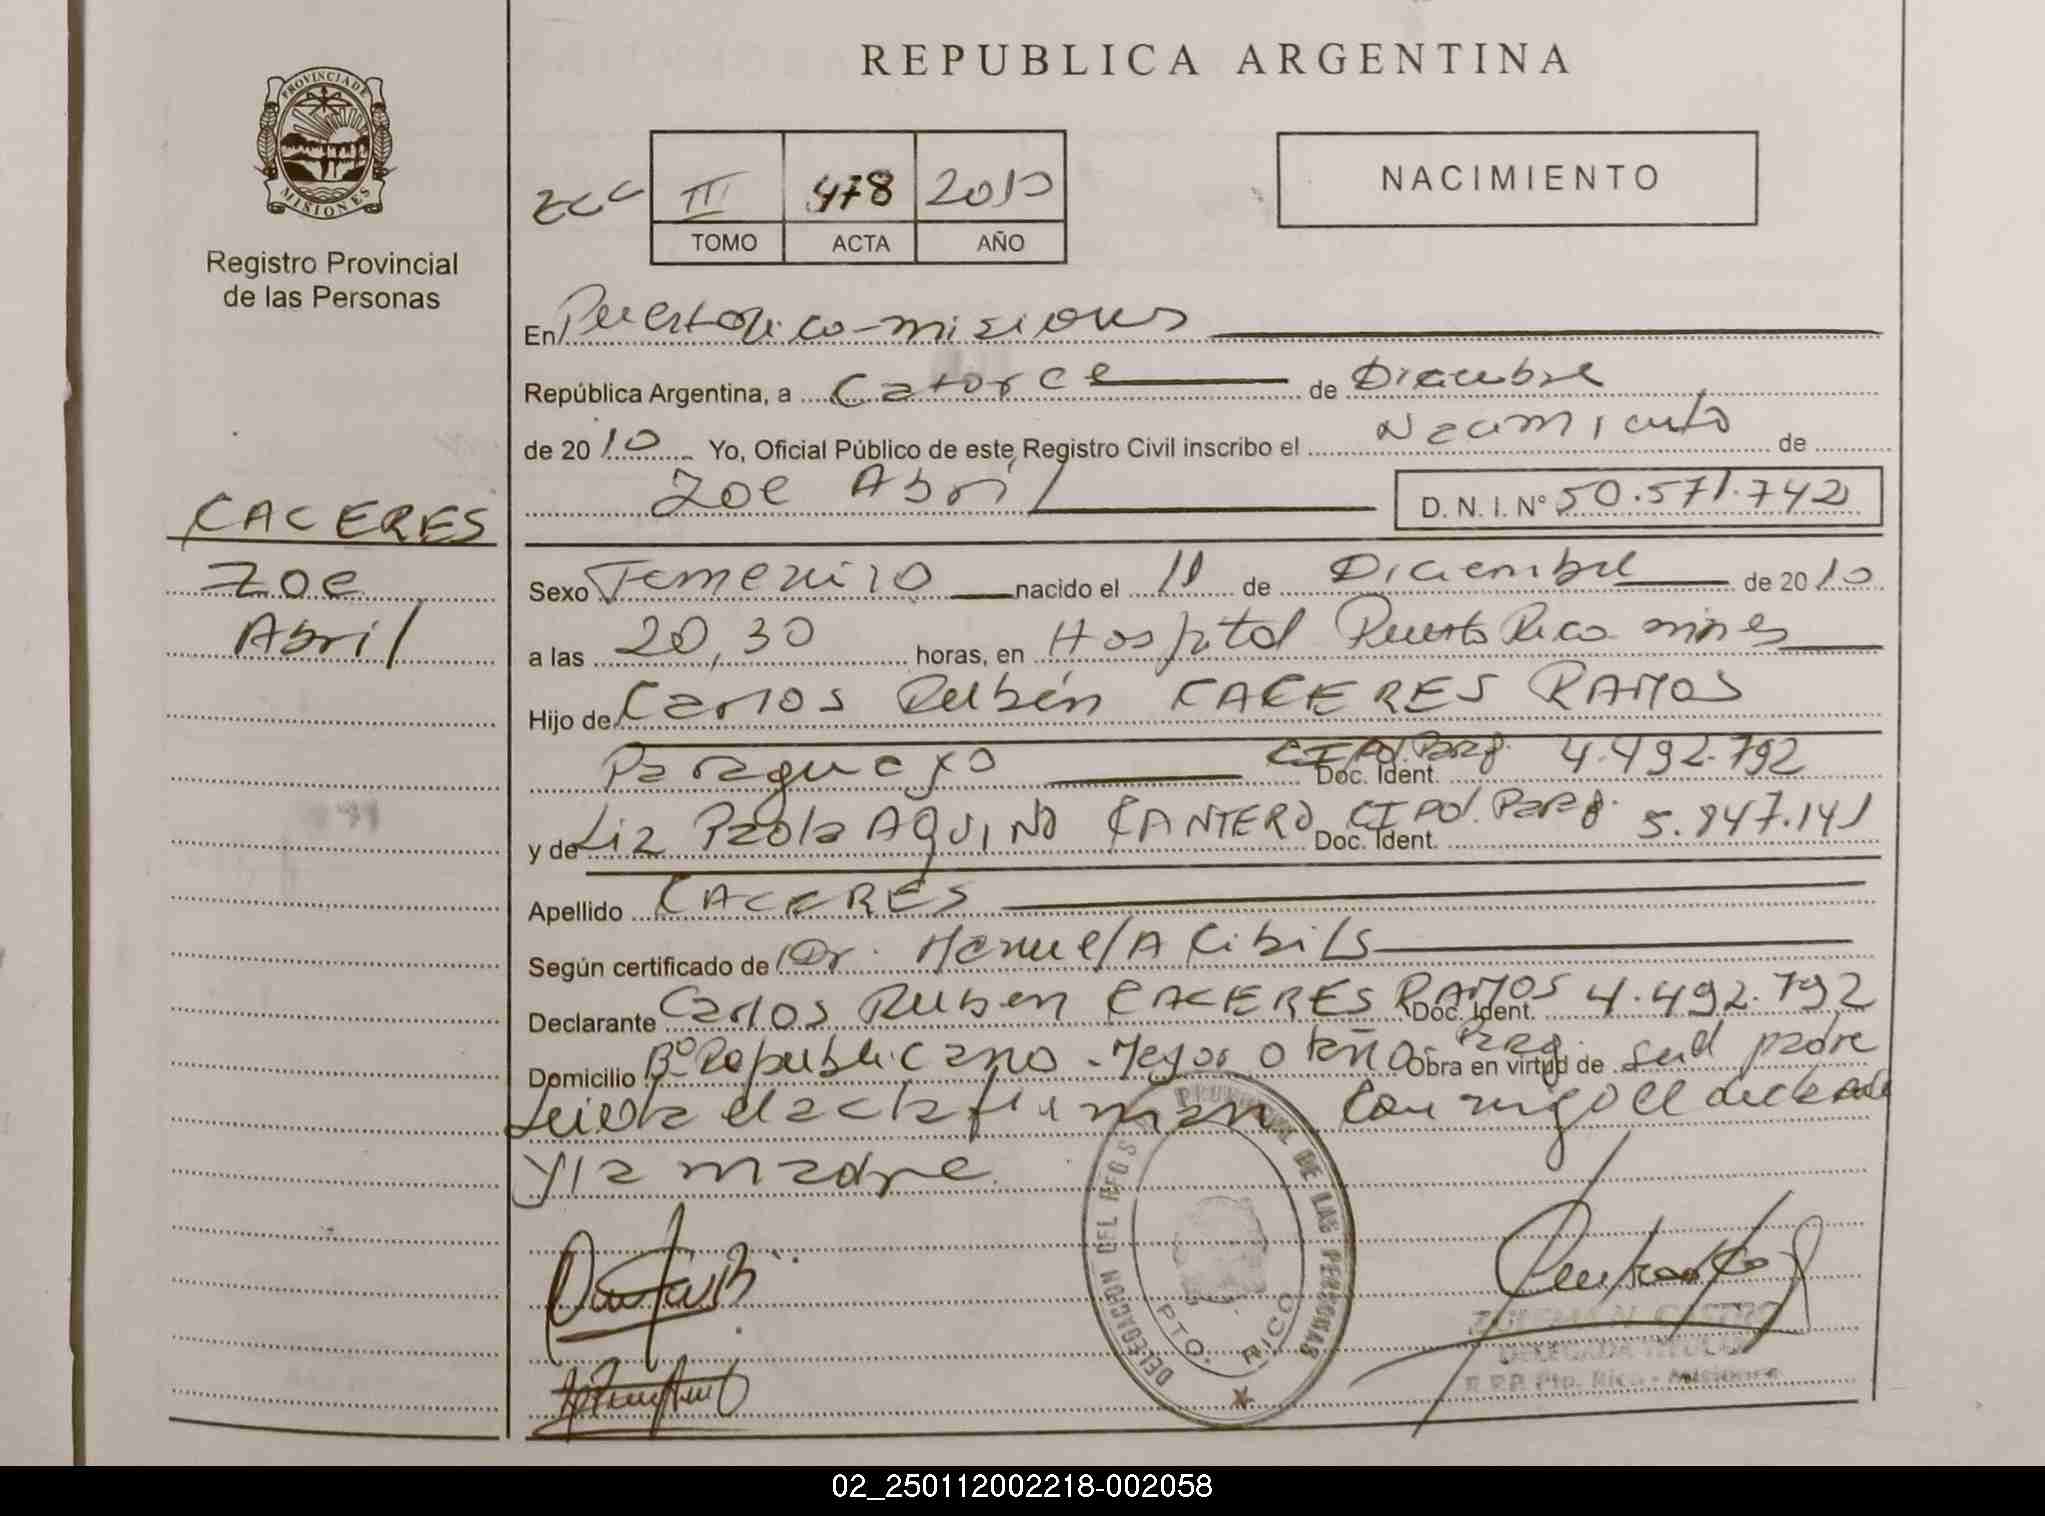 REPUBLICA ARGENTINA
PROVINCIA DE
MISIONES
Registro Provincial
de las Personas
III 478 2010
TOMO ACTA AÑO
NACIMIENTO
En Puerto Rico - misiones
República Argentina, a Catorce de Diciembre
de 2010 Yo, Oficial Público de este Registro Civil inscribo el Nacimiento de
Zoe Abril D. N. I. Nº 50.571.742
CACERES
Zoe
Abril
Sexo Femenino nacido el 11 de Diciembre de 2010
a las 20,30 horas, en Hospital Puerto Rico mnes
Hijo de Carlos Rubén CACERES RAMOS
Paraguayo CI Pol. Parag. Doc. Ident. 4.492.792
y de Liz Paola AQUINO CANTERO CI Pol. Parag. Doc. Ident. 5.947.141
Apellido CACERES
Según certificado de Dr. Manuel A Cibils
Declarante Carlos Ruben CACERES RAMOS Doc. Ident. 4.492.792
Domicilio Bº Republicano - Mayor Otaño Parag. Obra en virtud de ser el padre
Leida el acta firman conmigo el declarante
y la madre
DELEGACION DEL REGISTRO PROVINCIAL DE LAS PERSONAS
PTO. RICO
CASTRO
DELEGADA TITULAR
R.P.P. Pto. Rico - Misiones
02_250112002218-002058